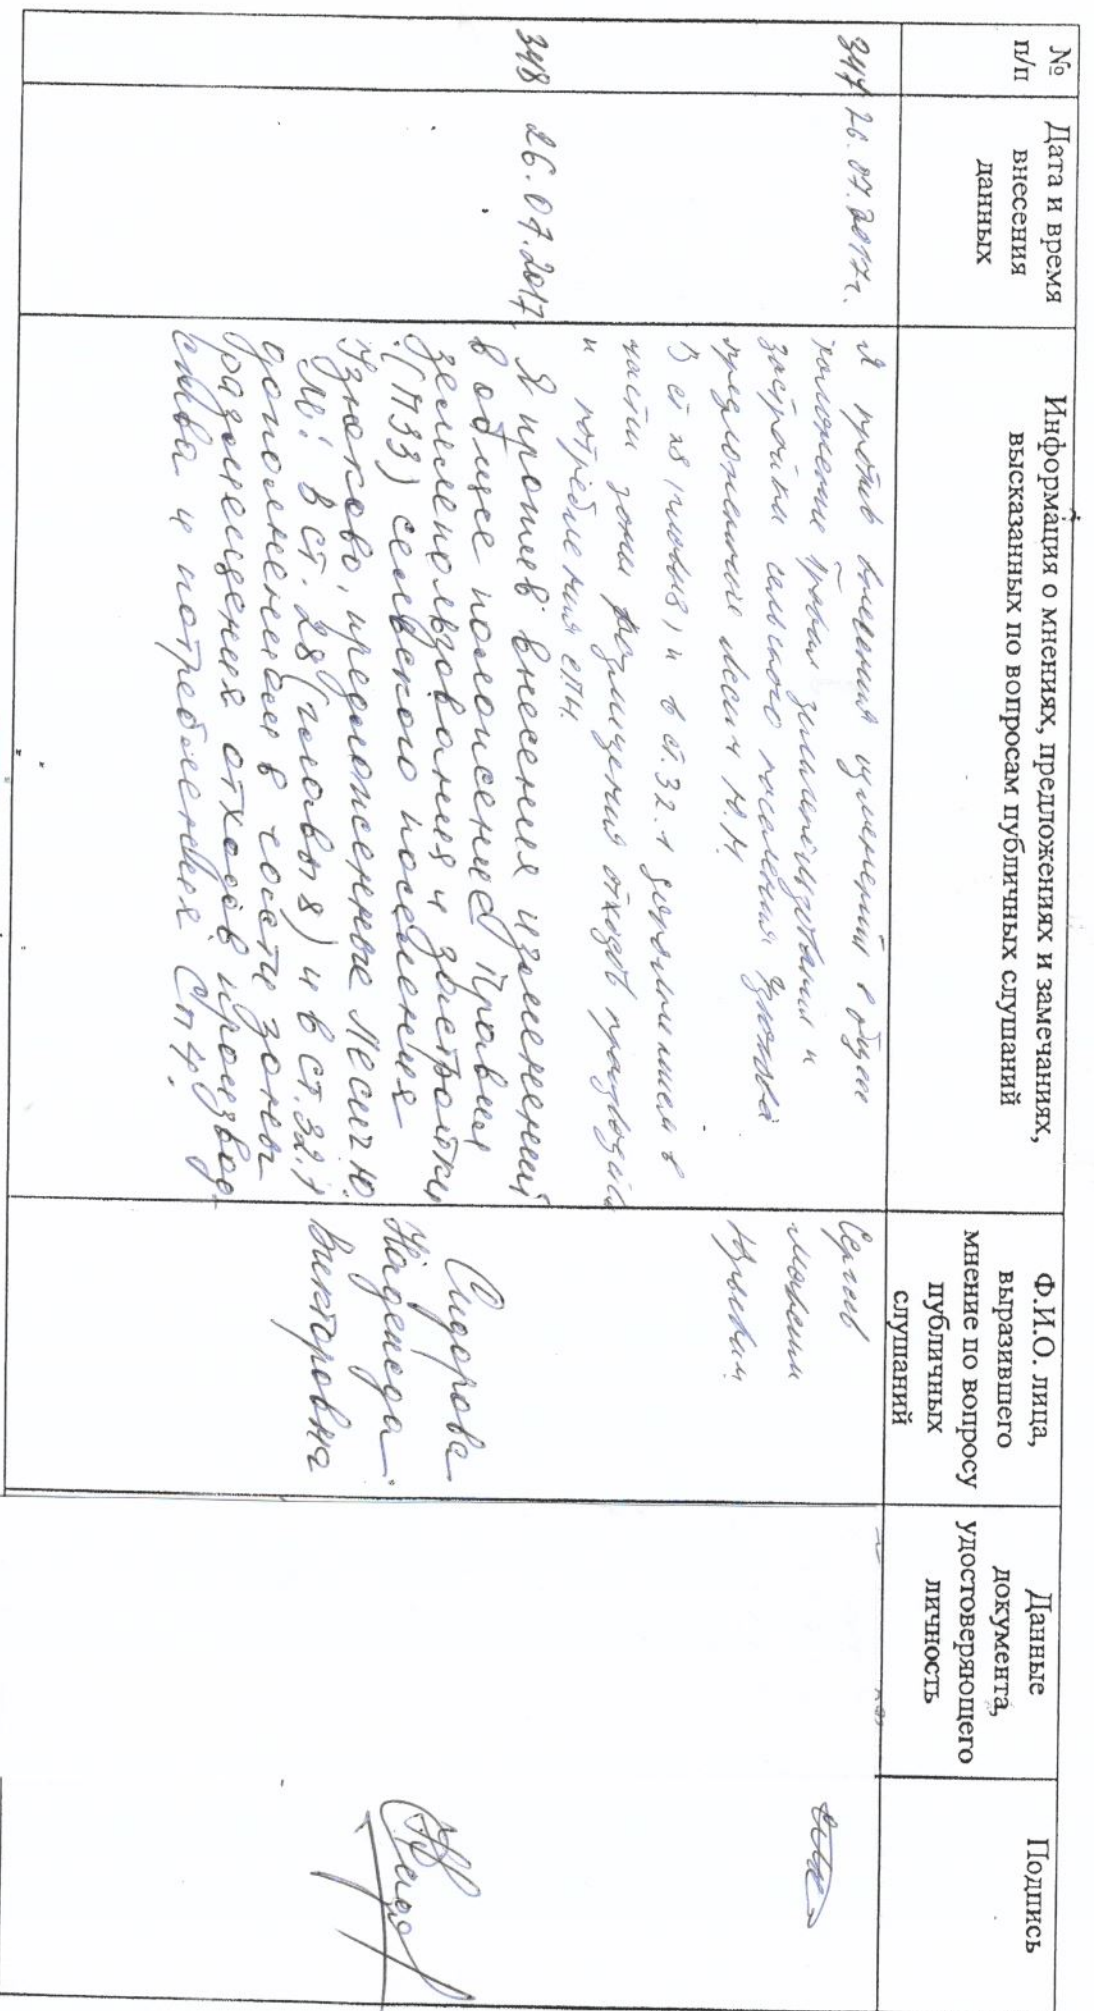 №
п/п
Дата и время
внесения
данных
Информация о мнениях, предложениях и замечаниях,
высказанных по вопросам публичных слушаний
Ф.И.О. лица,
выразившего
мнение по вопросу
публичных
слушаний
Данные
документа,
удостоверяющего
личность
Подпись
347
26.07.2017г.
Я против внесения изменений в общее
положение Правил землепользования и
застройки сельского поселения Узюково
предложенные Лесич Ю.Н.
В ст 28 (главы 8) и в ст. 32.1 дополнением в
части зоны размещения отходов производства
и потребления СП4.
Сергеев
Максим
Юрьевич
348
26.07.2017
Я против внесения изменений
в общее положение Правил
землепользования и застройки
(ПЗЗ) сельского поселения
Узюково, предложенные Лесич Ю.
М. в ст. 28 (главы 8) и в ст. 32.1
дополнением в части зоны
размещения отходов производ
ства и потребления СП4.
Сидорова
Надежда
Викторовна